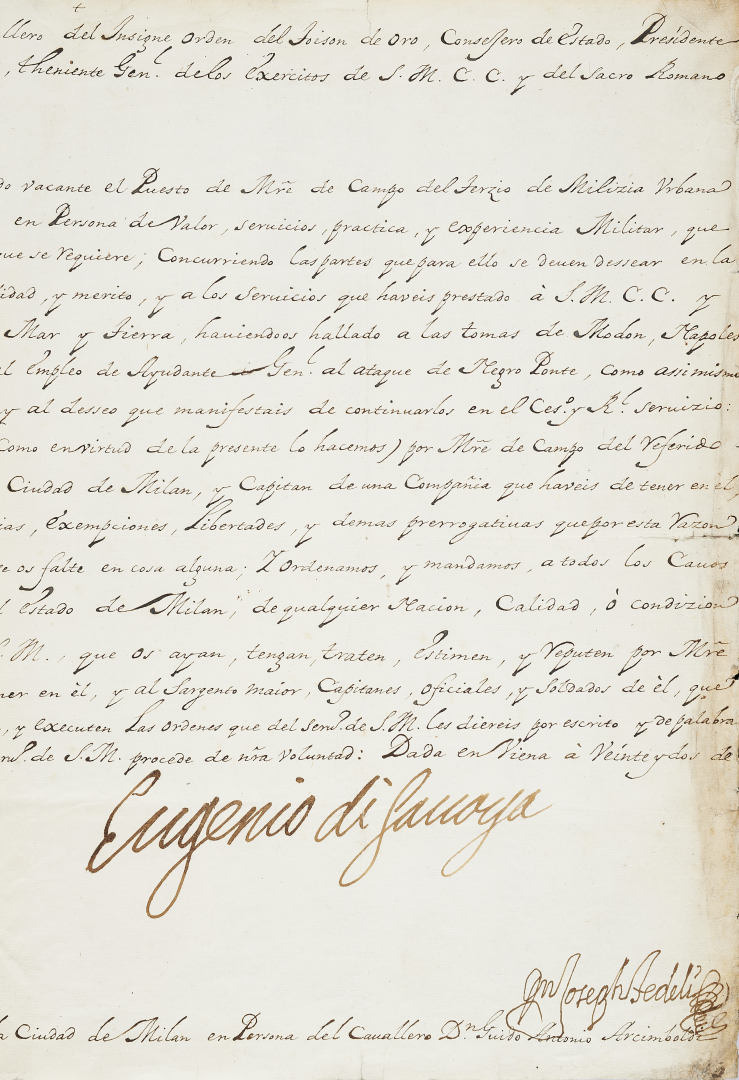 llero del Insigne orden del Toison de oro, Consejero de estado, Presidente
, theniente Gen.l delos exercitos de S. M. C. C. y del Sacro Romano
do vacante el Puesto de Mre de Campo del Terzio de Milizia Vrbana
en Persona de Valor, servicios, practica, y experiencia Militar, que
que se requiere; Concurriendo las partes que para ello se deuen dessear en la
lidad, y merito, y a los servicios que haveis prestado à S. M. C. C. y
Mar y Tierra, haviendoos hallado a las tomas de Modon, Napoles
el empleo de Ayudante Gen.l al ataque de Negro Ponte, como assimismo
y al desseo que manifestais de continuarlos en el Ces.o y R.l seruizio:
Como en virtud de la presente lo hacemos) por Mre de Campo del referido
Ciudad de Milan, y Capitan de una Compañia que haveis de tener en el,
ias, exempciones, Libertades, y demas prerrogatiuas que por esta razon
e os falte en cosa alguna; Y ordenamos, y mandamos, a todos los Cauos
l estado de Milan, de qualquier Nacion, Calidad, ò condizion
S. M., que os ayan, tengan, traten, estimen, y reputen por Mre
ner en èl, y al Sargento maior, Capitanes, oficiales, y soldados de èl, que
, y executen las ordenes que del seru.o de S. M. les diereis por escrito y de palabra
ru.o de S. M. procede de nra voluntad: Dada en Viena à Veinte y dos de
Eugenio di Sauoya
Joseph Fedeli
a Ciudad de Milan en Persona del Cauallero D.n Guido Antonio Arcimboldi